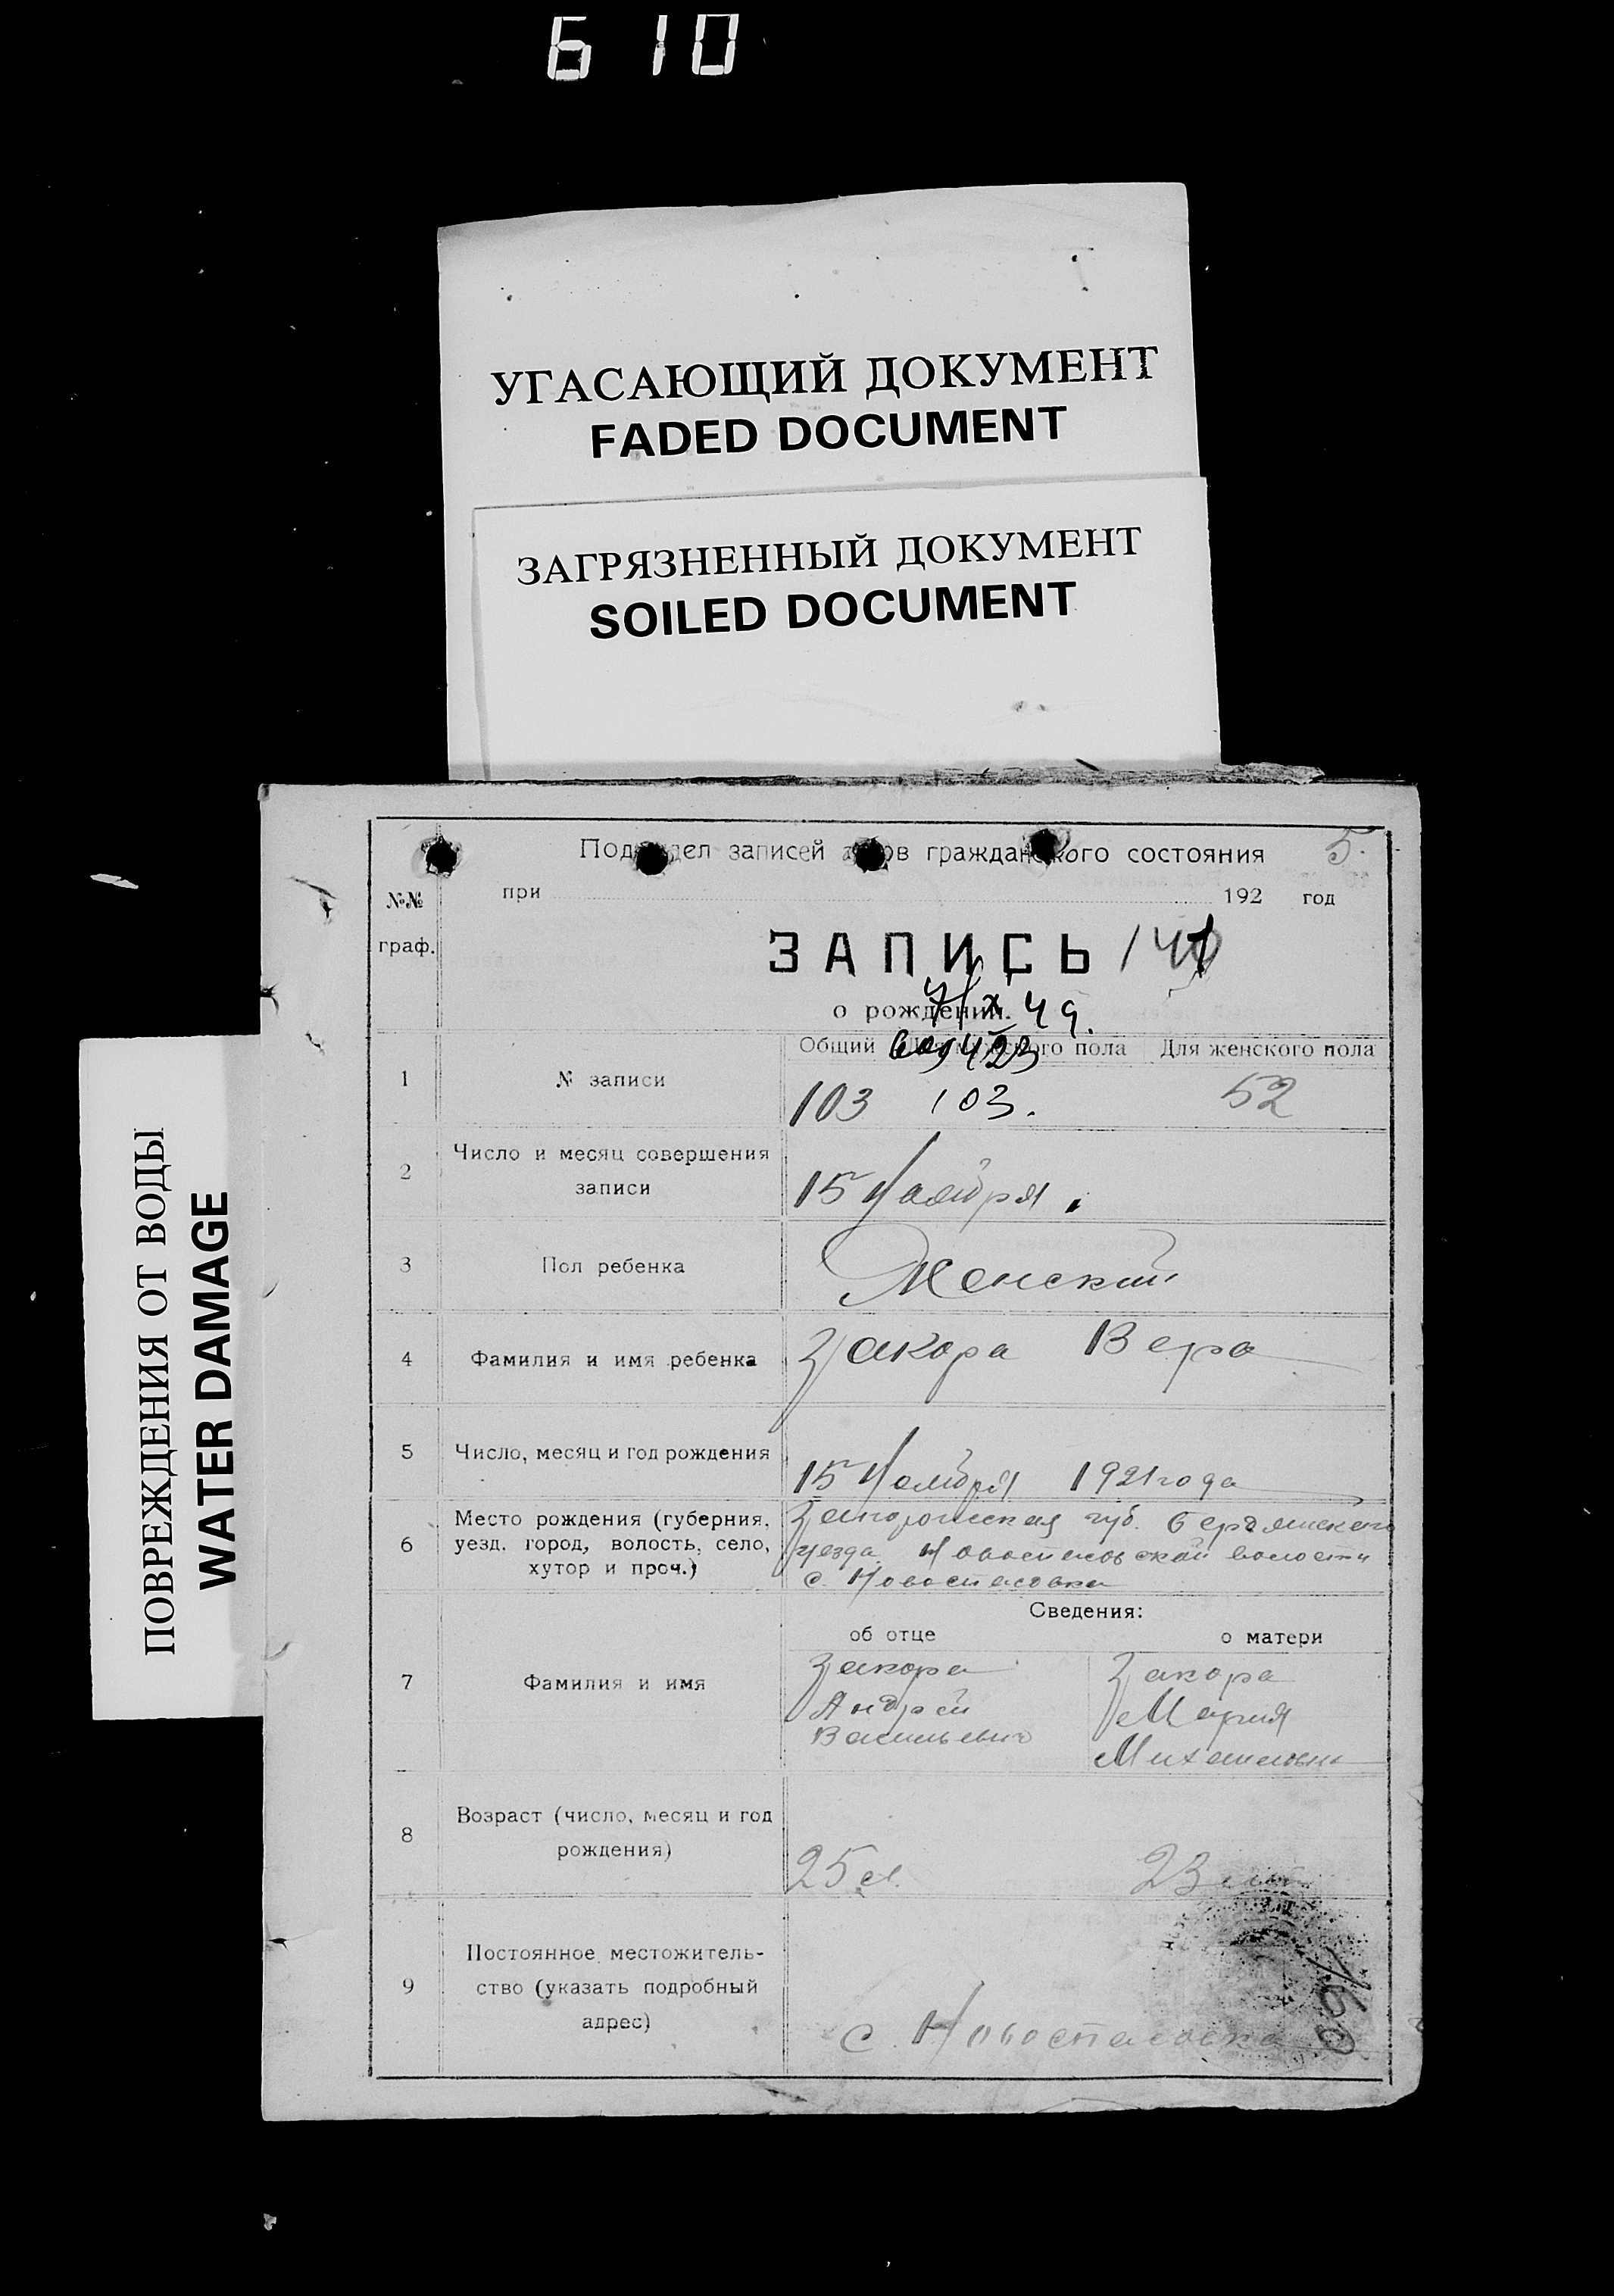 6 10
УГАСАЮЩИЙ ДОКУМЕНТ
FADED DOCUMENT
ЗАГРЯЗНЕННЫЙ ДОКУМЕНТ
SOILED DOCUMENT
ПОВРЕЖДЕНИЯ ОТ ВОДЫ
WATER DAMAGE
записей гражданского состояния 5.
№№ граф.
при 192 год
ЗАПИСЬ
о рождении. 49.
Общий пола Для женского пола
1 № записи 103 103. 52
2 Число и месяц совершения
записи 15 Ноября.
3 Пол ребенка Женский
4 Фамилия и имя ребенка Закора Вера
5 Число, месяц и год рождения 15 Ноября 1921 года
6 Место рождения (губерния,
уезд, город, волость, село,
хутор и проч.)
Запорожская губ. Бердянского
уезда Новоспасовской волости
с. Новоспасовка
Сведения:
об отце о матери
7 Фамилия и имя
Закора Закора
Андрей Мария
Васильевич
8 Возраст (число, месяц и год
рождения) 25 23
9 Постоянное местожитель-
ство (указать подробный
адрес)
с. Новоспасовка
160